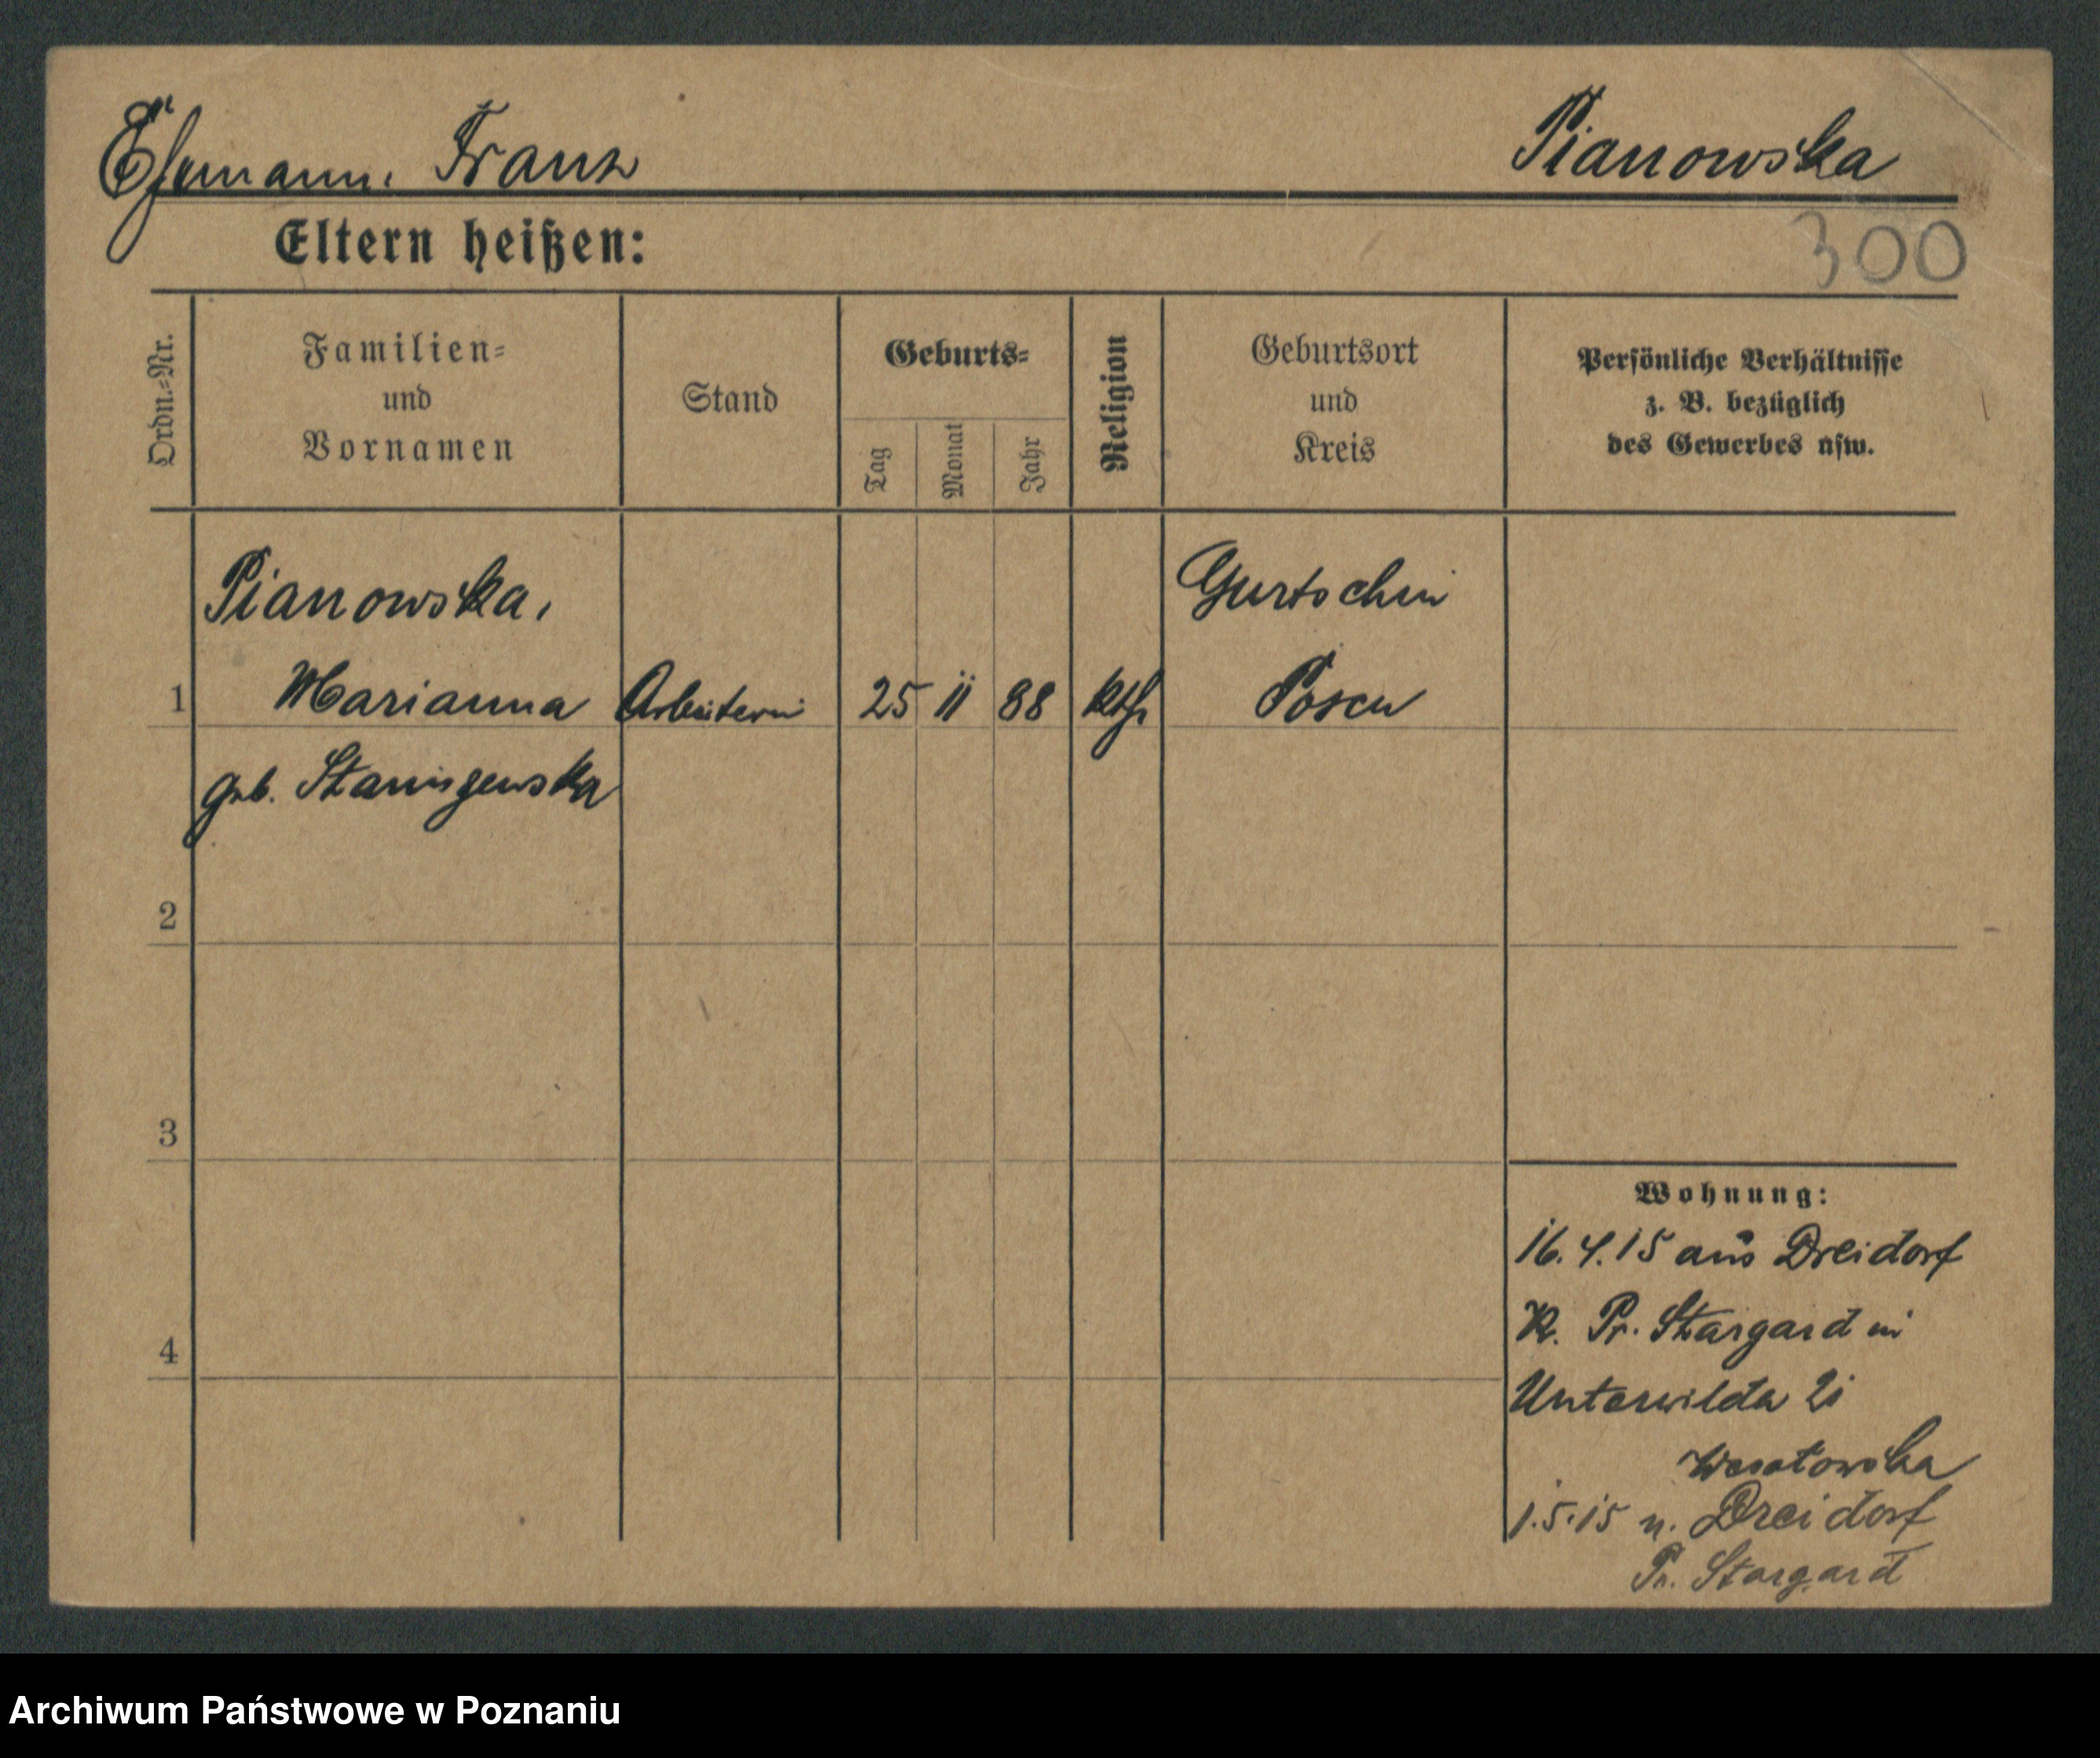 Ehemann: Franz Pianowska
300
Eltern heißen:
Ordn.=Nr.
Familien=
und
Vornamen
Stand
Geburts=
Tag
Monat
Jahr
Religion
Geburtsort
und
Kreis
Persönliche Verhältnisse
z. B. bezüglich
des Gewerbes usw.
Pianowska, Gurtschin
1 Marianna Arbeiterin 25 11 88 kth Posen
geb. Staniszewska
2
3
4
Wohnung:
16.4.15 aus Dreidorf
K. Pr. Stargard in
Unterwilda 21
1.5.15 n. Dreidorf
Pr. Stargard
Archiwum Państwowe w Poznaniu